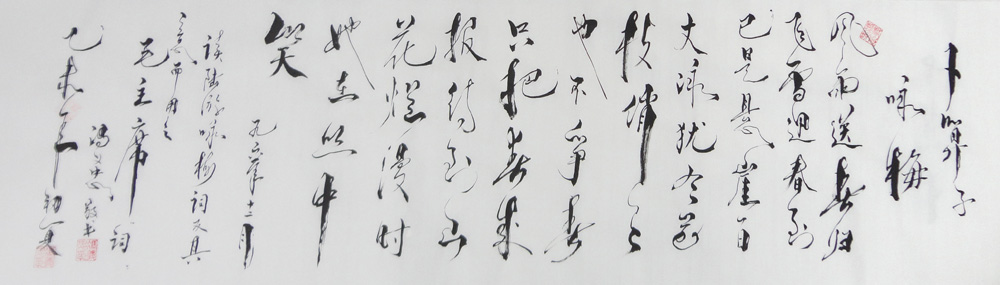 卜算子
咏梅
风雨送春归
飞雪迎春到
已是悬崖百
丈冰犹有花
枝俏々
也不争春
只把春来
报待到山
花烂漫时
她在丛中
笑
九六一年十二月
读陆游咏梅词反其
意而用之
毛主席词
冯
敬书
乙未